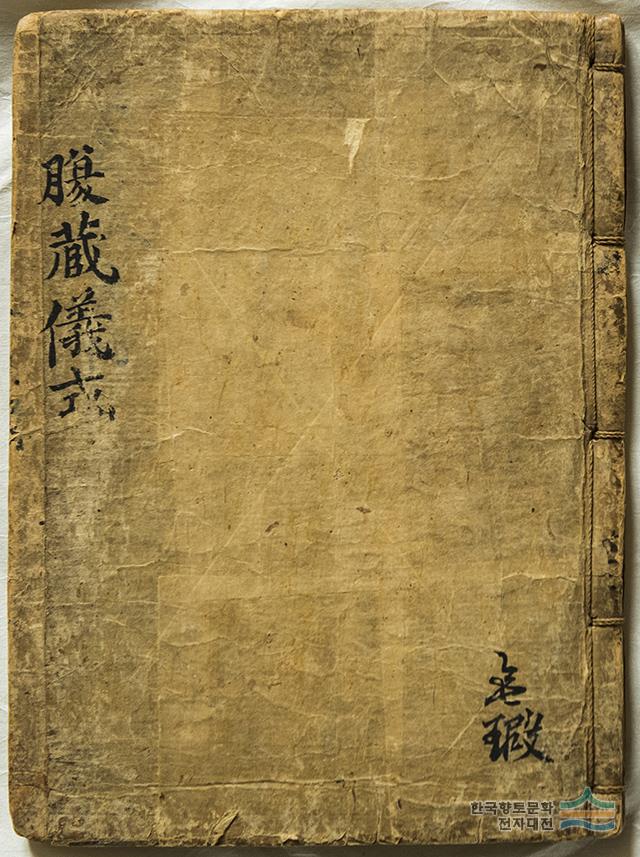 腹蔵儀式
瑕
한국향토문화
전자대전